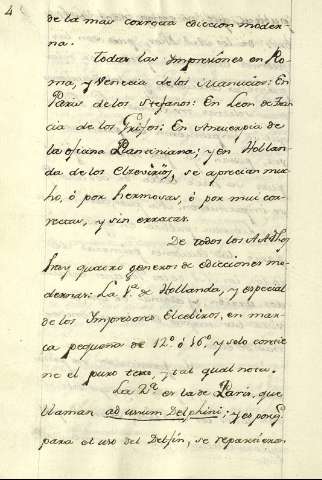 4
de la mas correcta ediccion moder-
na.
Todas las Impresiones en Ro-
ma, y Venecia de los Manucios: En
Paris de los Stefanos: En Leon de Fran-
cia de los Grifos: En Amverpia de
la oficina Planciniana; y en Hollan-
da de los Elzevirios, se aprecian mu-
cho, ó por hermosas, ó por mui cor-
rectas, y sin erratas.
De todos los AA. Thos
hay quatro generos de edicciones mo-
dernas: La 1ª de Hollanda, y especial
de los Ympresores Elcebiros, en mar-
ca pequeña de 12º ó 16º y solo contie-
ne el puro texto, y tal qual nota.
La 2ª es la de Paris, que
llaman ad usum Delphini; y es porq.
para el uso del Delfin, se reparcieron